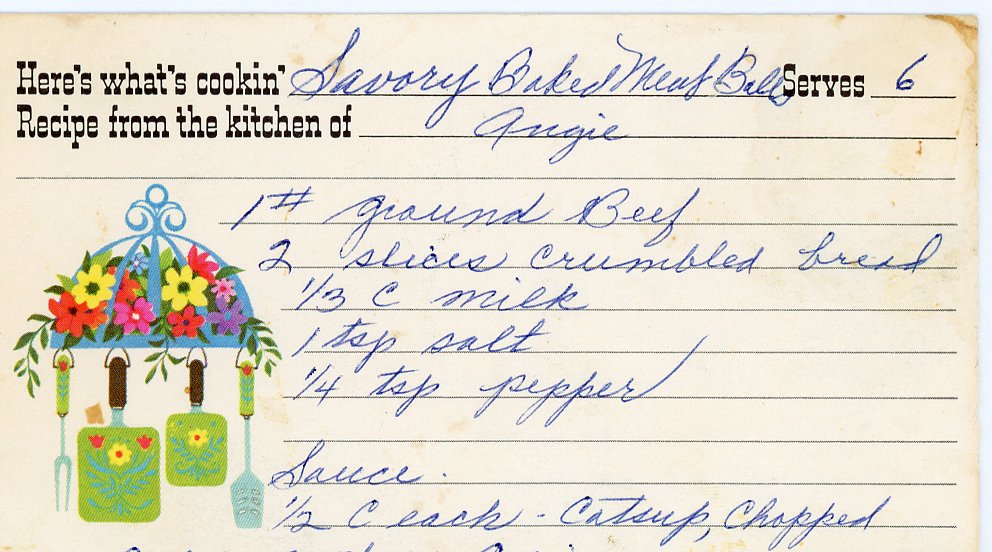 Here's what's cookin' Savory Baked Meat Balls Serves 6
Recipe from the kitchen of Angie
1# ground Beef
2 slices crumbled bread
1/3 C milk
1 tsp salt
1/4 tsp pepper
Sauce.
1/2 C each - Catsup, Chopped